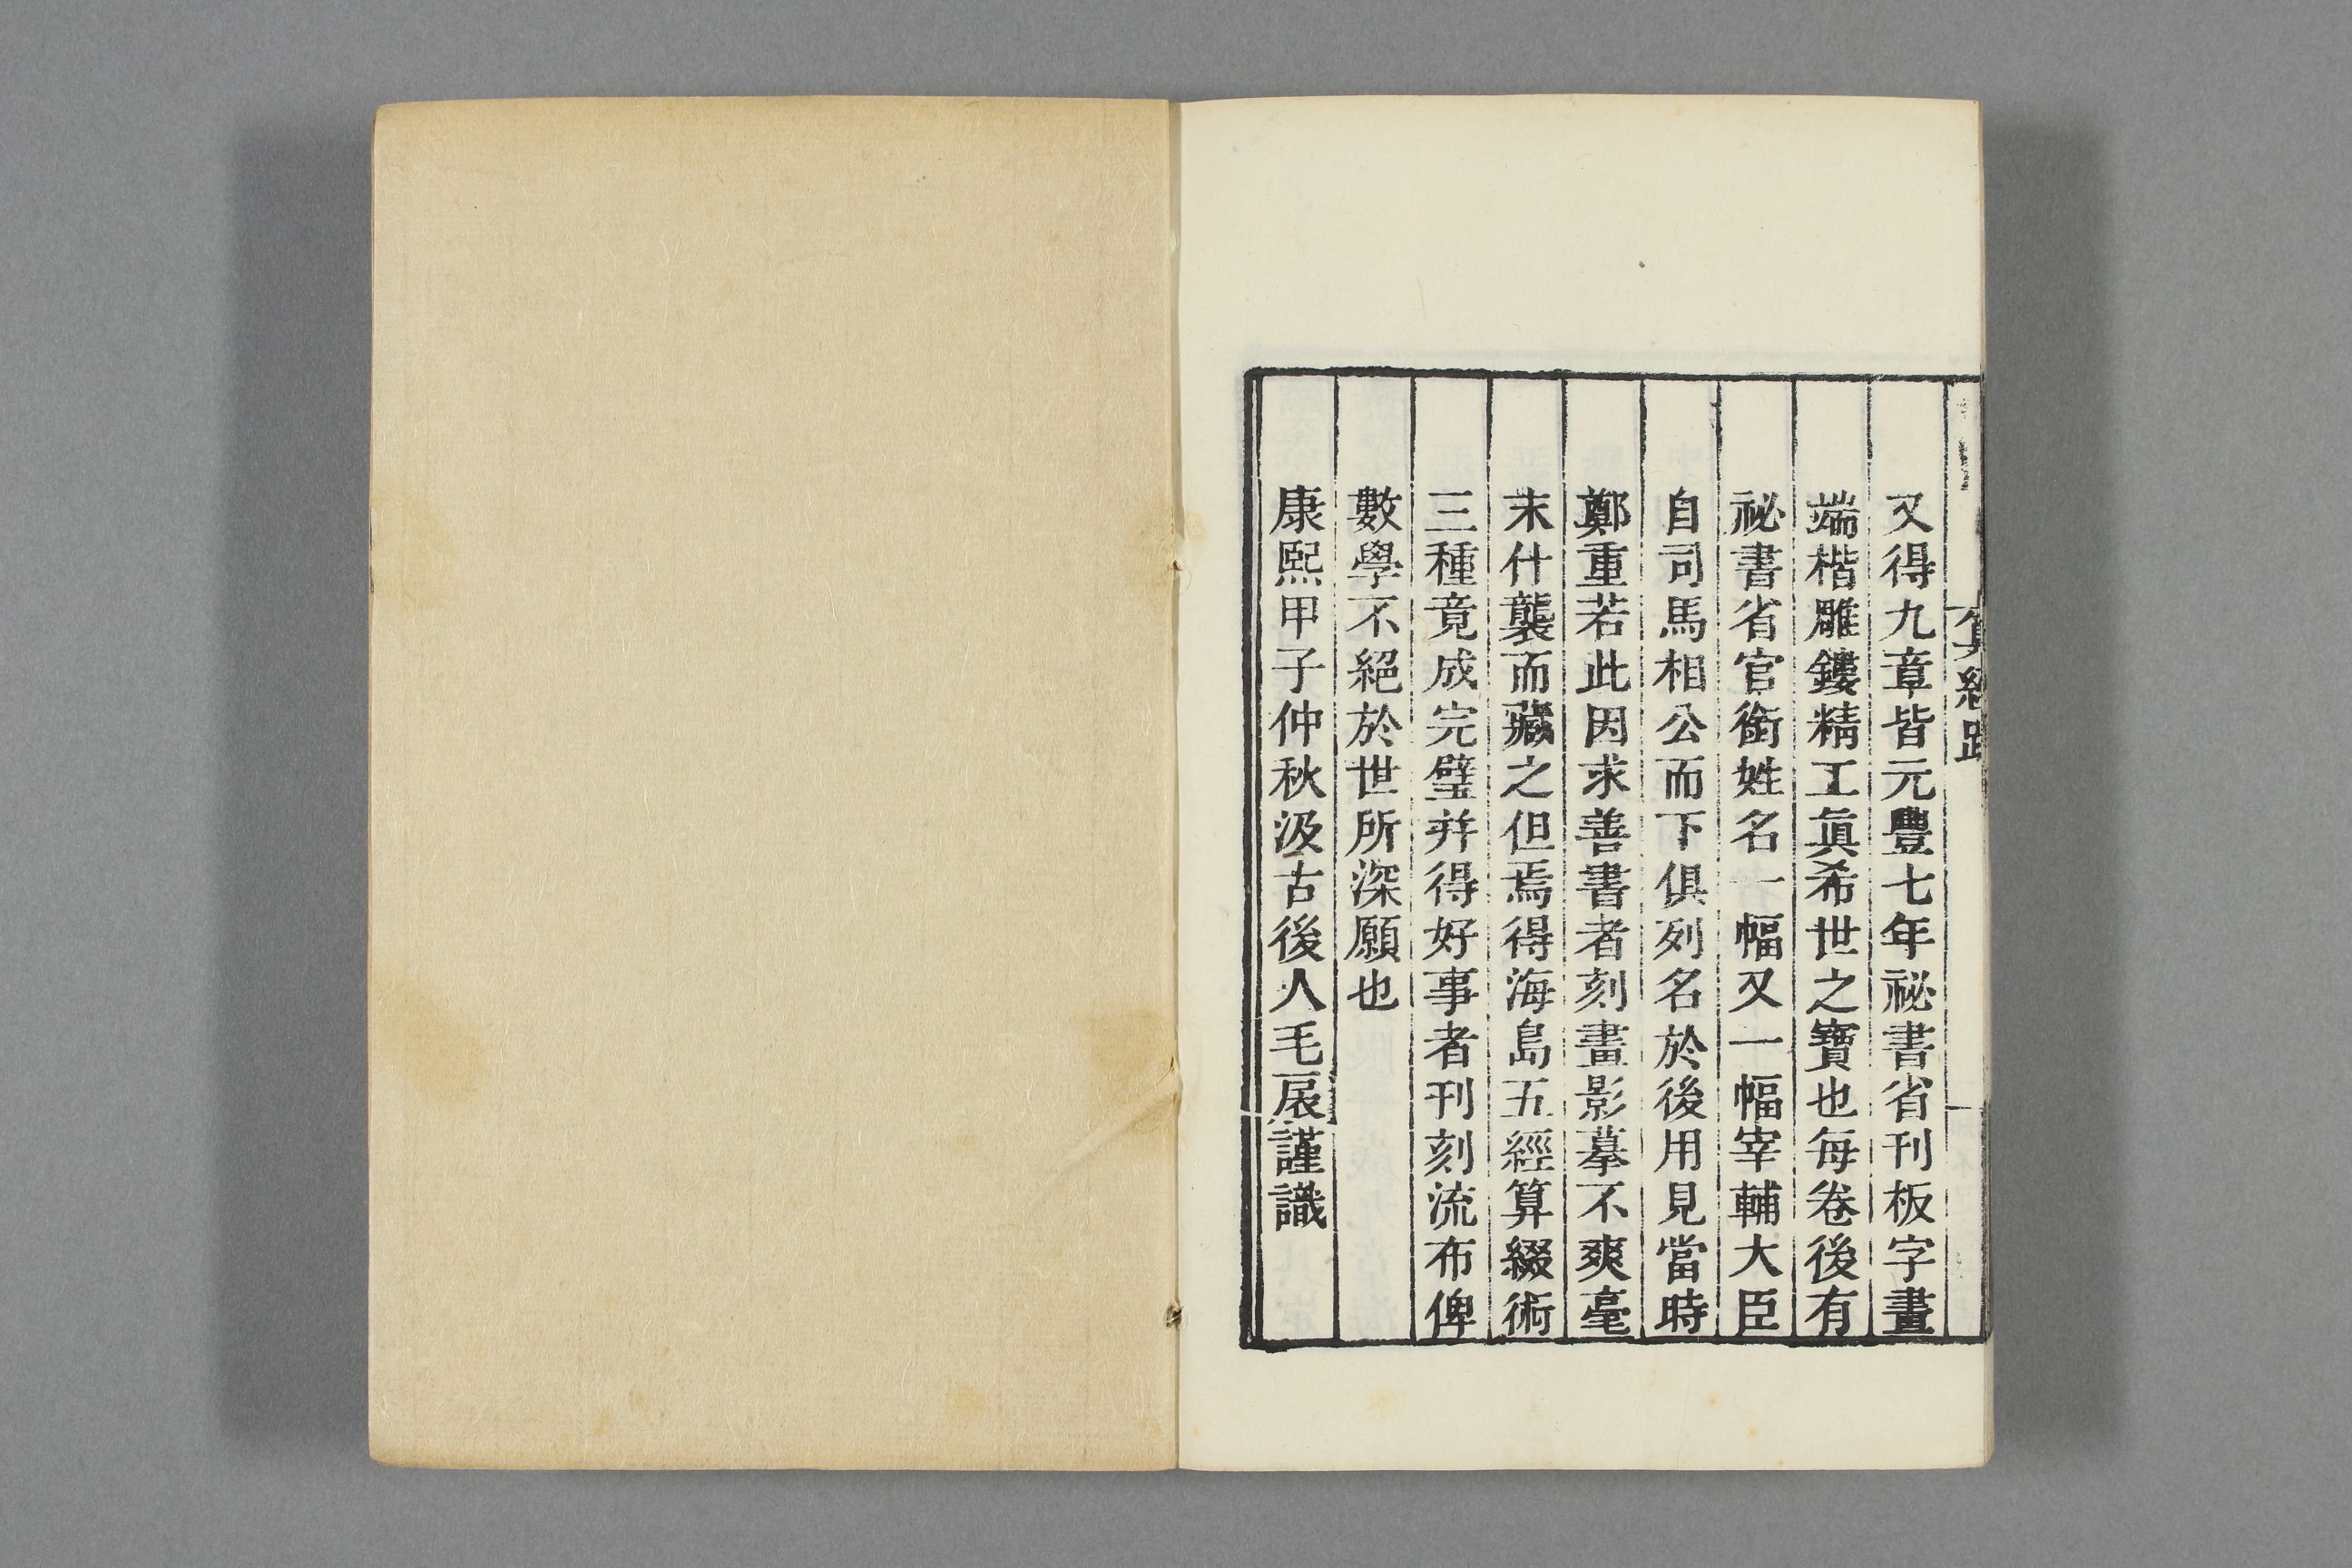 算經跋
又得九章皆元豐七年祕書省刊板字畫
端楷雕鏤精工眞希世之寶也每卷後有
祕書省官銜姓名一幅又一幅宰輔大臣
自司馬相公而下俱列名於後用見當時
鄭重若此因求善書者刻畫影摹不爽毫
末什襲而藏之但焉得海島五經算綴術
三種竟成完璧并得好事者刊刻流布俾
數學不絕於世所深願也
康熙甲子仲秋汲古後人毛扆謹識